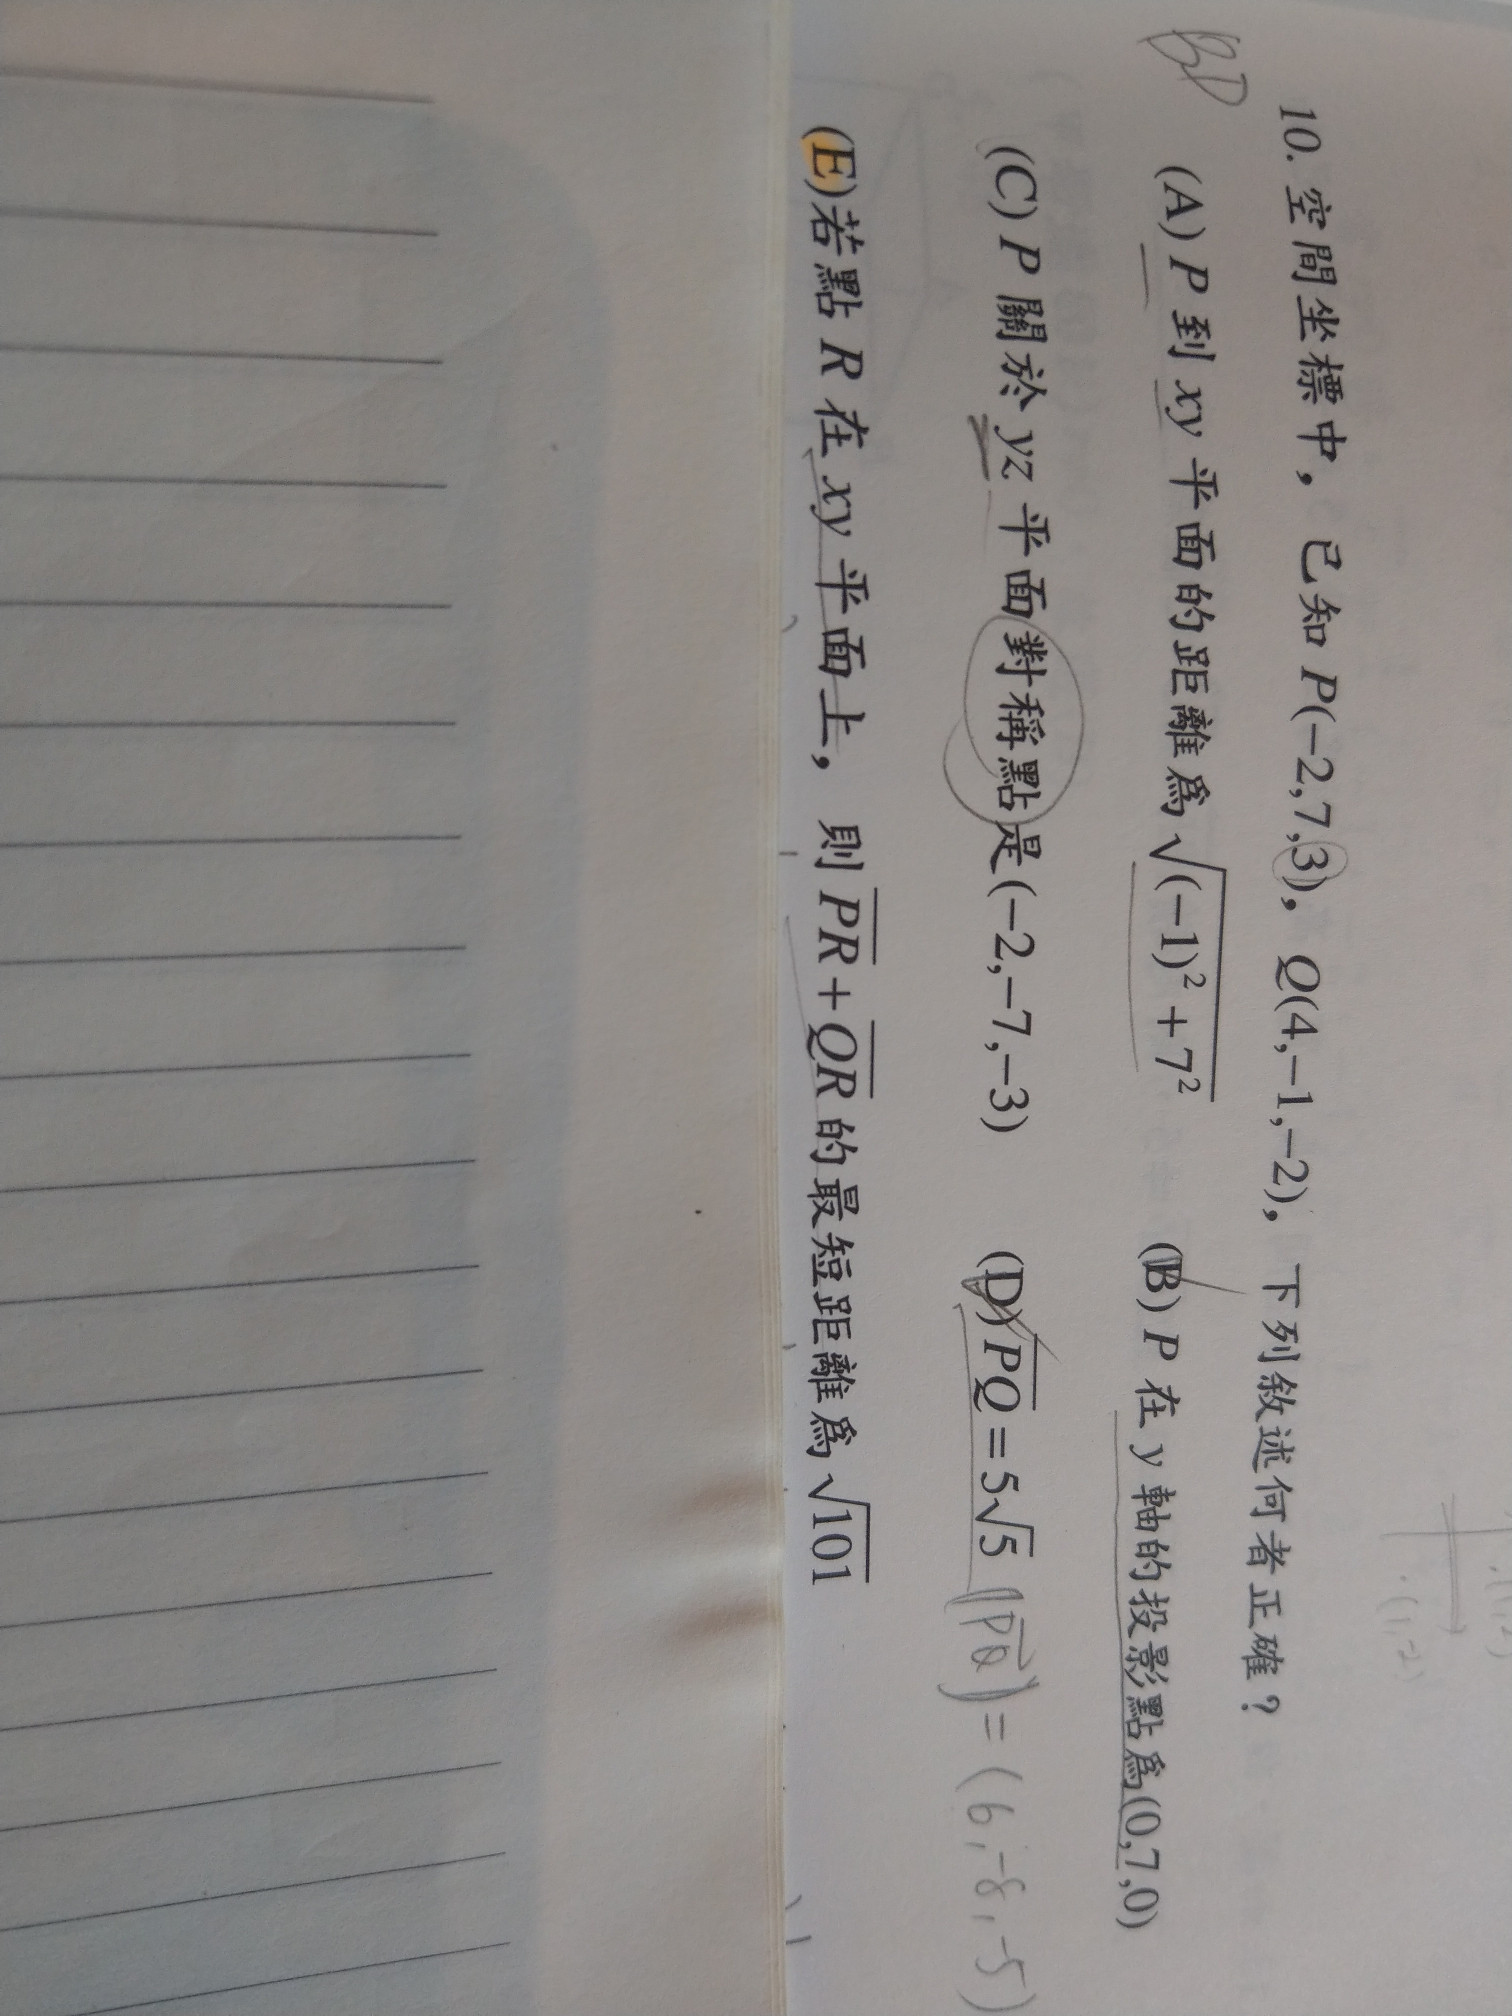 BD
10. 空間坐標中，已知 P(−2,7,3)，Q(4,−1,−2)，下列敘述何者正確？
(A) P 到 xy 平面的距離為 √((−1)²+7²) (B) P 在 y 軸的投影點為(0,7,0)
(C) P 關於 yz 平面對稱點是(−2,−7,−3) (D) PQ = 5√5 |PQ| = (6,−8,−5)
(E)若點 R 在 xy 平面上，則 PR + QR 的最短距離為 √101